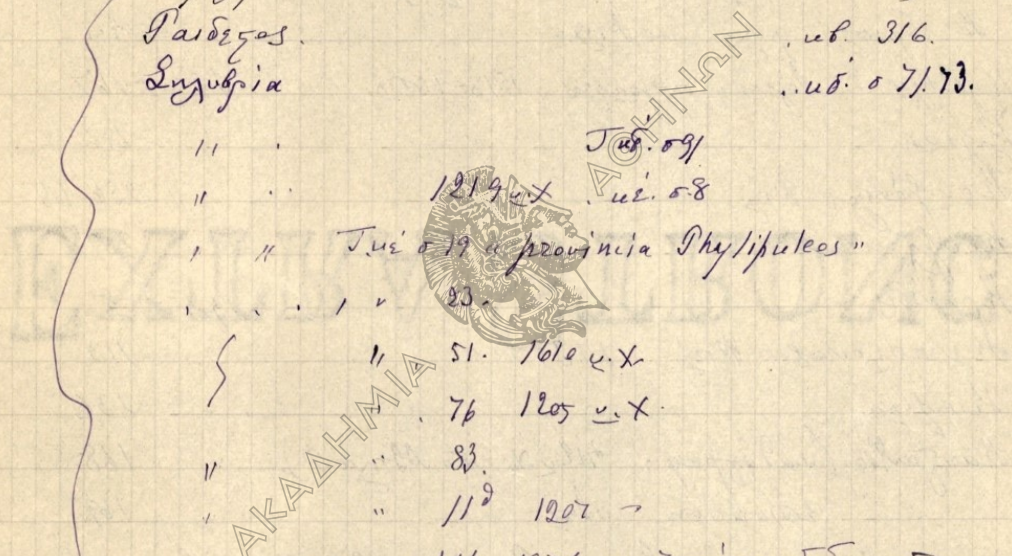 Γαιδεπος. . κβ. 316.
Σηλυβρία . . κδ. σ 71. 73.
〃 . Τ κδ. σ 91
〃 . . 1219 μ.Χ . κέ. σ. 8
〃 〃 Τ. κέ σ 19 " provincia Phylipuleos "
. . . , 〃 23.
〃 51. 1610 μ.Χ.
〃 . 76 1205 μ.Χ.
〃 〃 83.
〃 11 1207
ΑΚΑΔΗΜΙΑ ΑΘΗΝΩΝ